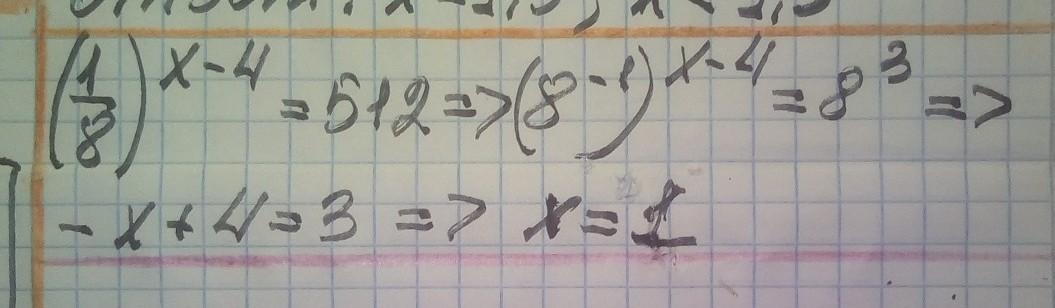 (1/8)^(x-4) = 512 => (8^(-1))^(x-4) = 8^3 =>
-x+4=3 => x=1